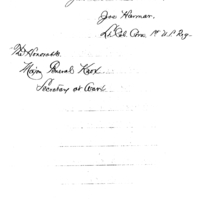 Jos Harmar.
Lt. Col. Com. 1st U.S. Regt.
The Honorable
Major General Knox
Secretary at War.